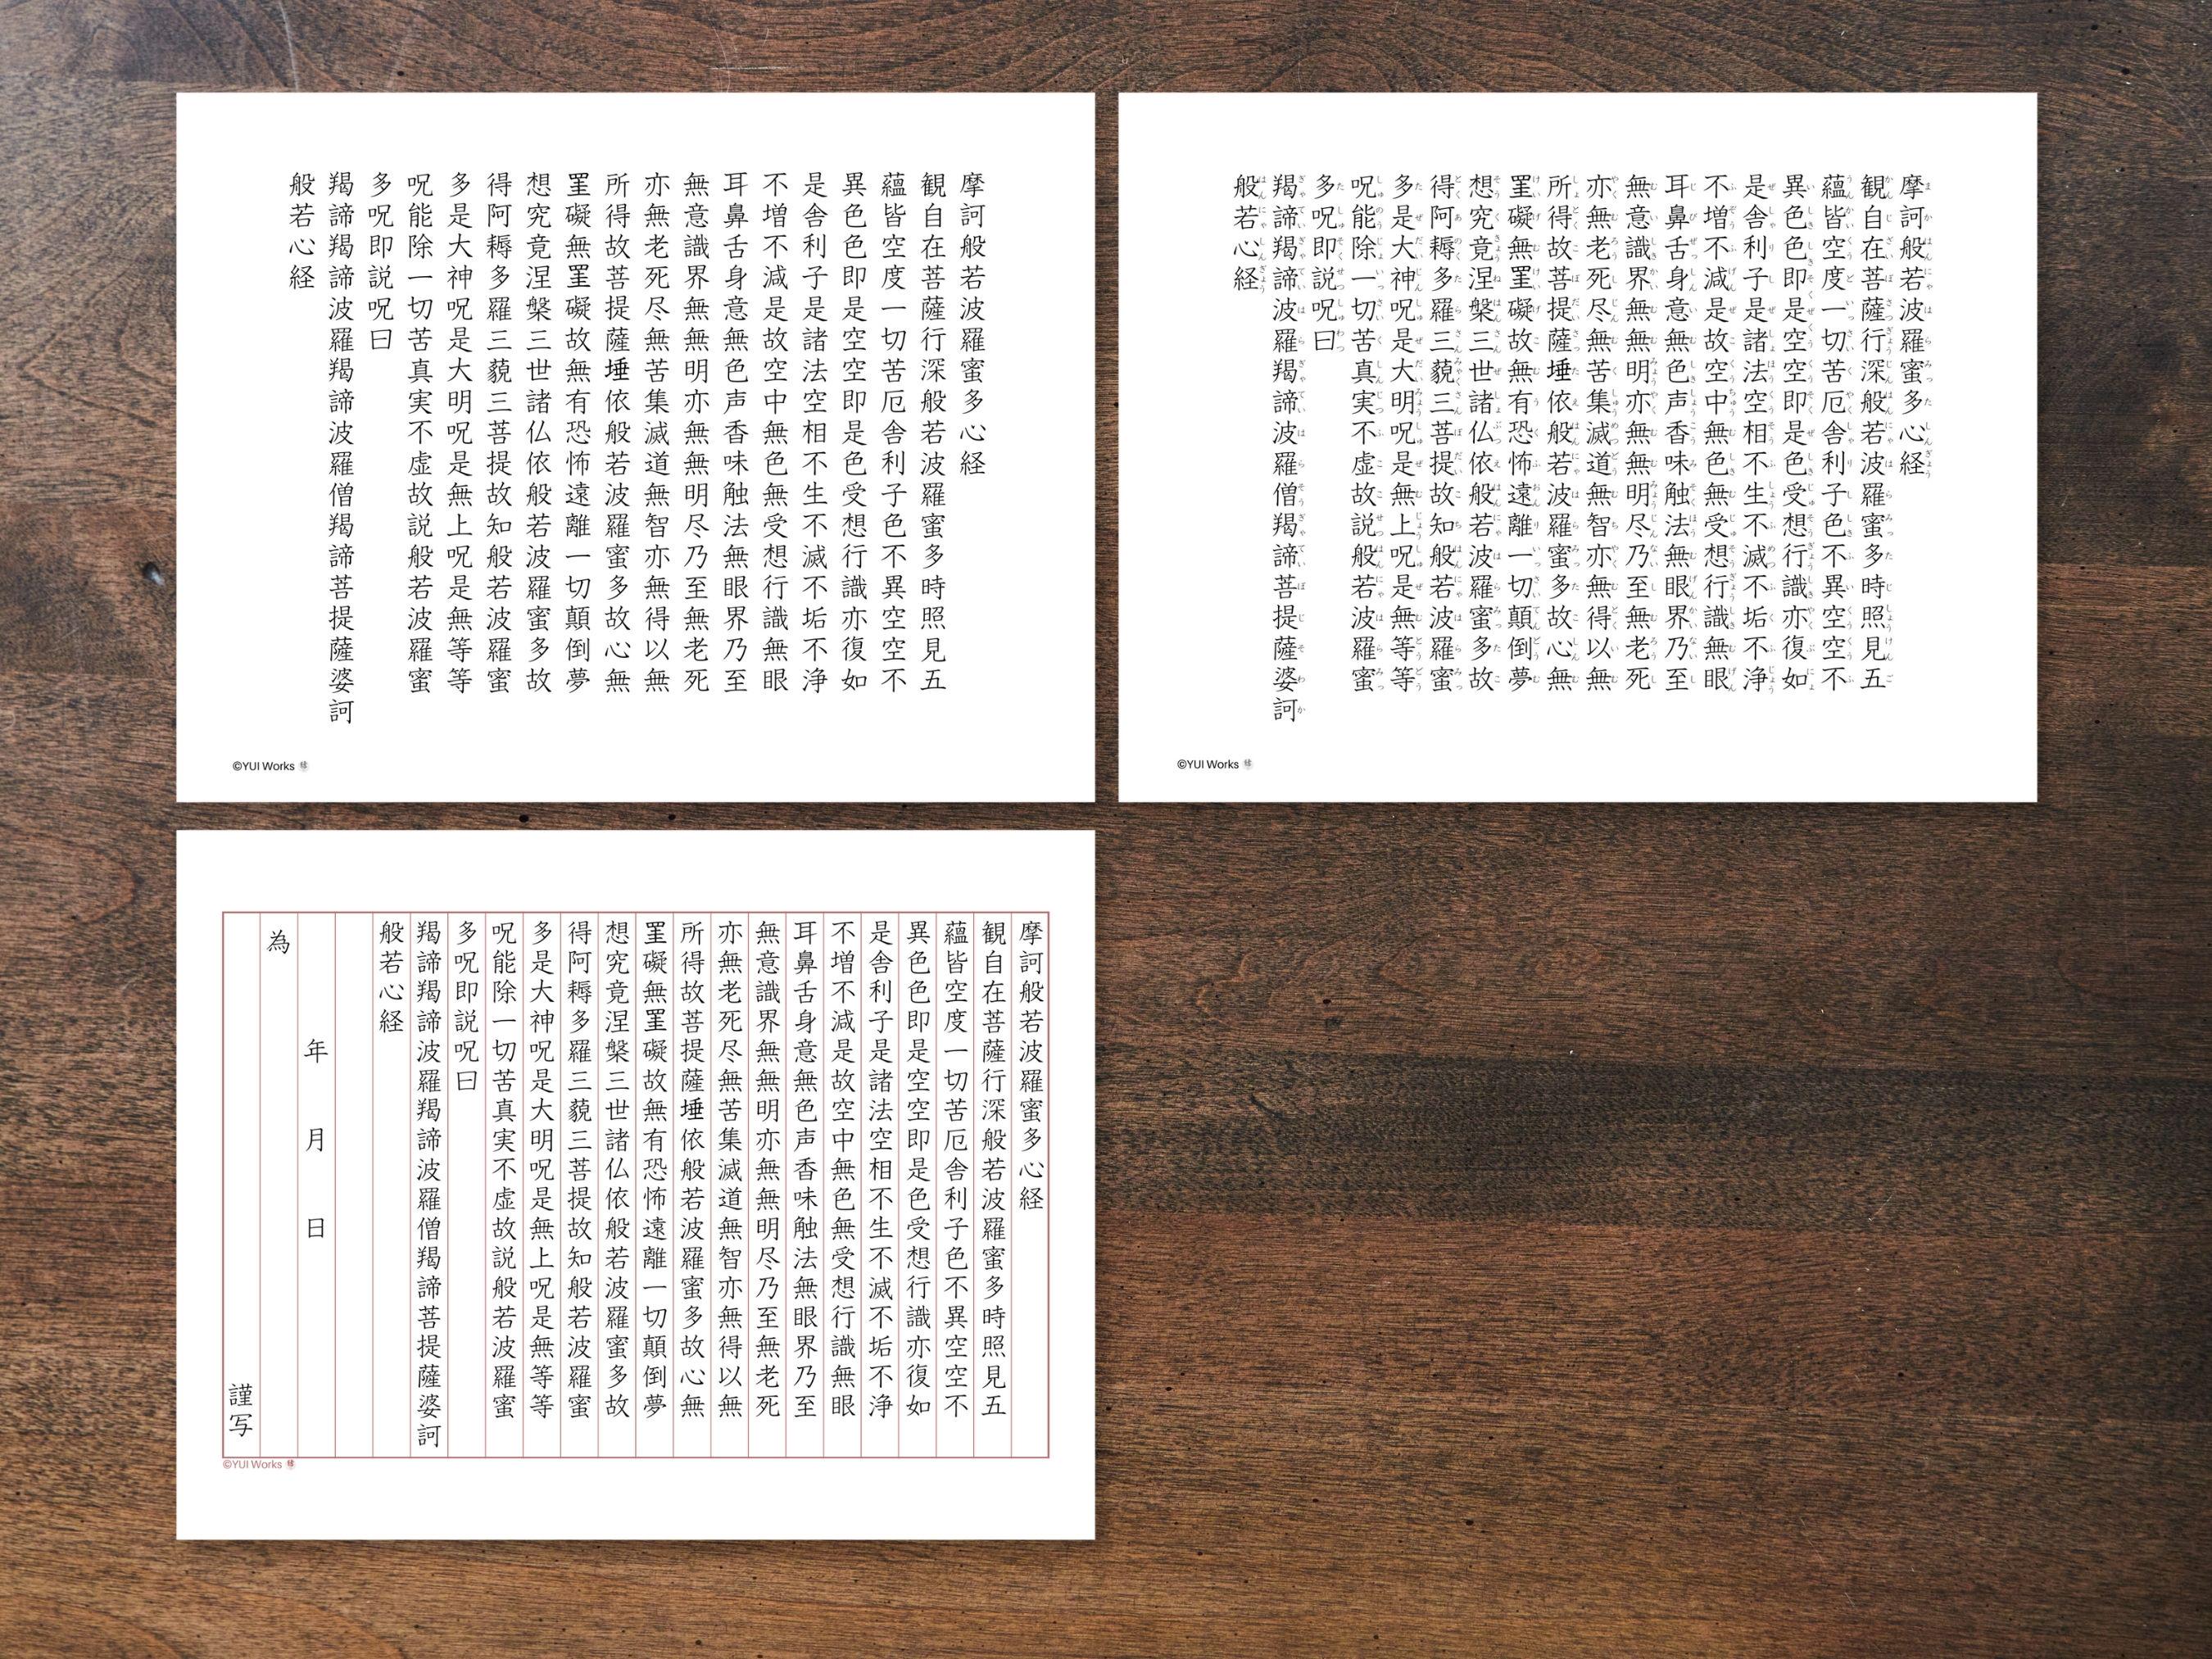 摩訶般若波羅蜜多心経
観自在菩薩行深般若波羅蜜多時照見五
蘊皆空度一切苦厄舎利子色不異空空不
異色色即是空空即是色受想行識亦復如
是舎利子是諸法空相不生不滅不垢不浄
不増不減是故空中無色無受想行識無眼
耳鼻舌身意無色声香味触法無眼界乃至
無意識界無無明亦無無明尽乃至無老死
亦無老死尽無苦集滅道無智亦無得以無
所得故菩提薩埵依般若波羅蜜多故心無
罣礙無罣礙故無有恐怖遠離一切顛倒夢
想究竟涅槃三世諸仏依般若波羅蜜多故
得阿耨多羅三藐三菩提故知般若波羅蜜
多是大神呪是大明呪是無上呪是無等等
呪能除一切苦真実不虚故説般若波羅蜜
多呪即説呪曰
羯諦羯諦波羅羯諦波羅僧羯諦菩提薩婆訶
般若心経
©YUI Works
摩訶般若波羅蜜多心経
観自在菩薩行深般若波羅蜜多時照見五
蘊皆空度一切苦厄舎利子色不異空空不
異色色即是空空即是色受想行識亦復如
是舎利子是諸法空相不生不滅不垢不浄
不増不減是故空中無色無受想行識無眼
耳鼻舌身意無色声香味触法無眼界乃至
無意識界無無明亦無無明尽乃至無老死
亦無老死尽無苦集滅道無智亦無得以無
所得故菩提薩埵依般若波羅蜜多故心無
罣礙無罣礙故無有恐怖遠離一切顛倒夢
想究竟涅槃三世諸仏依般若波羅蜜多故
得阿耨多羅三藐三菩提故知般若波羅蜜
多是大神呪是大明呪是無上呪是無等等
呪能除一切苦真実不虚故説般若波羅蜜
多呪即説呪曰
羯諦羯諦波羅羯諦波羅僧羯諦菩提薩婆訶
般若心経
©YUI Works
摩訶般若波羅蜜多心経
観自在菩薩行深般若波羅蜜多時照見五
蘊皆空度一切苦厄舎利子色不異空空不
異色色即是空空即是色受想行識亦復如
是舎利子是諸法空相不生不滅不垢不浄
不増不減是故空中無色無受想行識無眼
耳鼻舌身意無色声香味触法無眼界乃至
無意識界無無明亦無無明尽乃至無老死
亦無老死尽無苦集滅道無智亦無得以無
所得故菩提薩埵依般若波羅蜜多故心無
罣礙無罣礙故無有恐怖遠離一切顛倒夢
想究竟涅槃三世諸仏依般若波羅蜜多故
得阿耨多羅三藐三菩提故知般若波羅蜜
多是大神呪是大明呪是無上呪是無等等
呪能除一切苦真実不虚故説般若波羅蜜
多呪即説呪曰
羯諦羯諦波羅羯諦波羅僧羯諦菩提薩婆訶
般若心経
年 月 日
為
謹写
©YUI Works